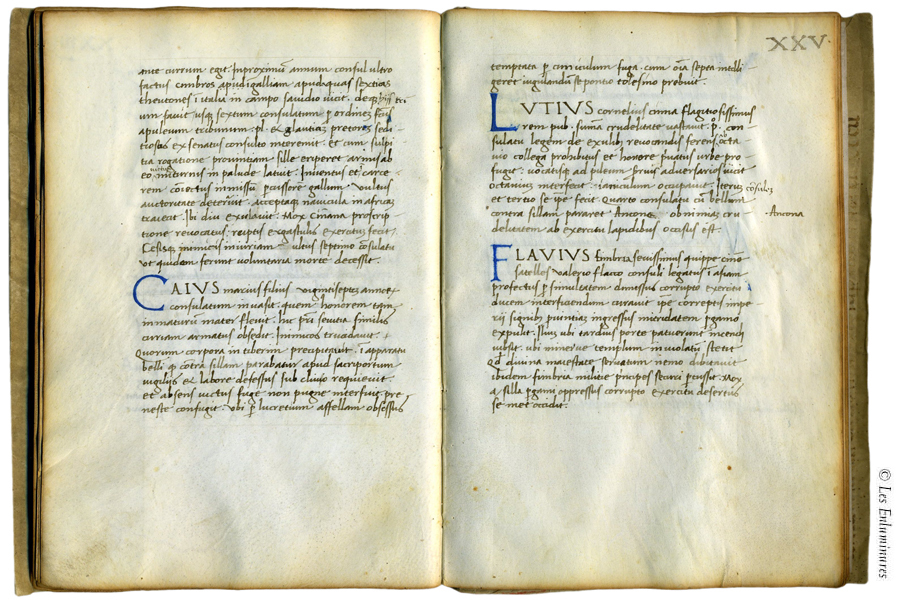 ante currum egit. Inproximũ annum consul ultro
factus cimbros apud galliam apud aquas sextias
theutones i italia in campo saudio uicit. deqʒ
um fauit usqʒ sextum consulatum ꝑ ordinez fc̃us
apuleum tribunum .pl. & glautiaʒ pretorẽ sedi
tiosos ex senatus consulto interemit. et cum sulpi
tia rogatione prouintiam sille eriperet armis ab
eo minturnis in palude latuit. Inuentus et i carce
rem coiectus inmissũ pcussore gallum uultus
auctoritate deterruit. acceptaqʒ nauicula in africaʒ
traiecit. Ibi diu exulauit. Mox Cinnana proscrip
tione reuocatus. ruptis ergastulis exercituʒ fecit.
Cesisqʒ inimicis iniuriam ultus septimo cõsulatu
ut quidam ferunt uoluntaria morte decessit.
CAIUS marcius filius uigintiseptez annoʒ
consulatum inuasit. quem honorem tam
inmaturum mater fleuit. hic pr̃i seuitia similis
curiam armatus obsedit. Inimicos trucidauit.
Quorum corpora in tiberim precipitauit. i apparatu
belli qͦ contra sillam parabatur apud sacriportum
uigiliis et labore defessus sub cliuo requieuit.
et absens uictus fuge non pugne interfuit. pre
neste confugit. Ubi ꝑ lucretium affellam obsessus
XXV
temptata ꝑ cuniculum fuga. cum oĩa septa intelli
geret iugulandũ se pontio telesino prebuit.
LUTIUS cornelius cinna flagitiosissimus
rem pub. suma crudelitate uastauit. pͦ. con
sulatu legem de exulibꝫ reuocandis ferens octa
uio collega prohibitus et honore priuatus urbe pro
fugit. uocatisqʒ ad pileum seruis aduersarios uicit
octauiuʒ interfecit. ianiculum occupauit. Iterum
cõsuleʒ
et tertio se ipẽ fecit. Quarto consulatu cũ bellum
contra sillam pararet Ancone. ob nimiaʒ cru
Ancona
delitatem ab exercitu lapidibus occisus est.
FLAVIUS fimbria seuissimus quippe cinne
satelles Valerio flacco consuli legatus i asiam
profectus ꝑ simultatem dimissus corrupto exercitu
ducem interficiendum curauit ipẽ correptis impe
rii signibꝫ prouintiaʒ ingressus mitridatem ꝑgamo
expulit. Iliuʒ ubi tardius porte patuerunt incendi
iussit. ubi minerue templum inuiolatũ stetit
Qd̃ diuina maiestate seruatum nemo dubitauit
ibidem fimbria militie principes securi ꝑcussit. Mox
a silla ꝑgami oppressus corrupto exercitu desertus
se met occidit.
© Les Enluminures